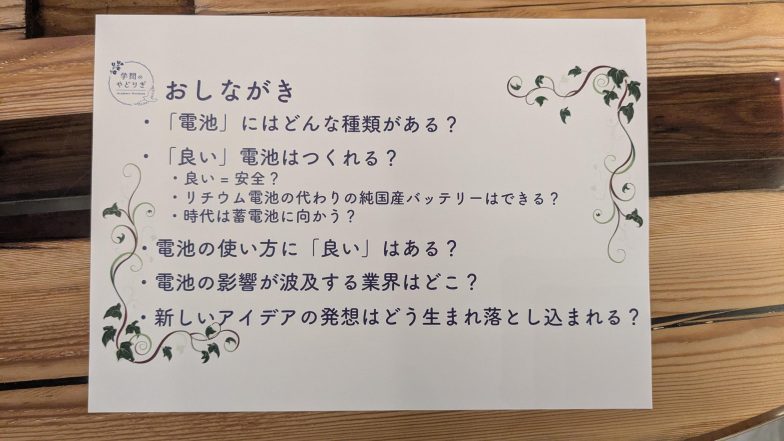 学問の
やどりぎ
おしながき
・「電池」にはどんな種類がある？
・「良い」電池はつくれる？
・良い = 安全？
・リチウム電池の代わりの純国産バッテリーはできる？
・時代は蓄電池に向かう？
・電池の使い方に「良い」はある？
・電池の影響が波及する業界はどこ？
・新しいアイデアの発想はどう生まれ落とし込まれる？